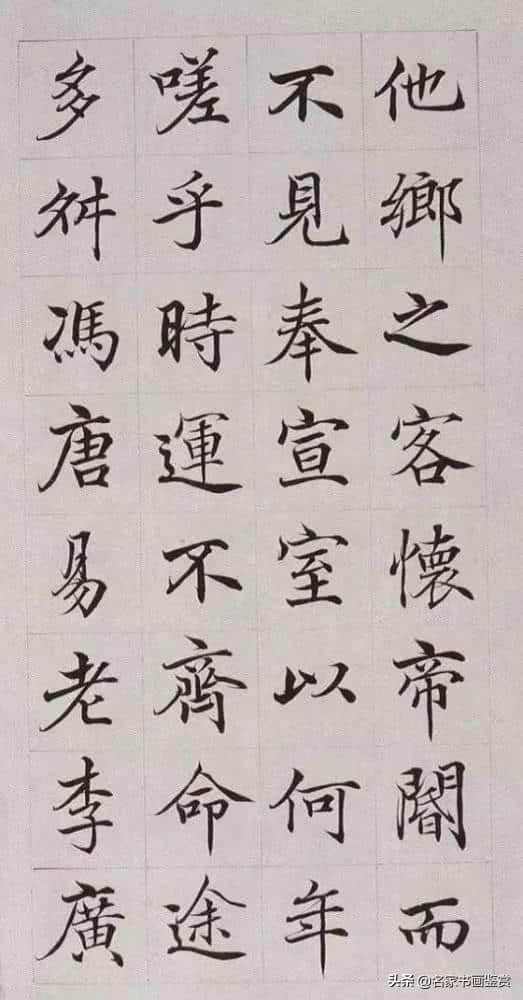 他鄉之客懷帝閽而
不見奉宣室以何年
嗟乎時運不齊命途
多舛馮唐易老李廣
头条 @名家书画鉴赏